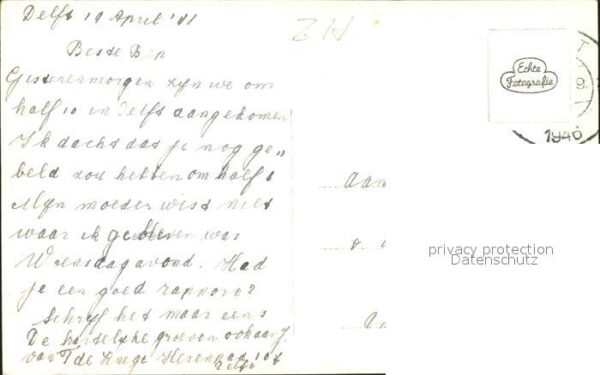 Delft 19 April '41
ZH
Beste Bep
Gisterenmorgen zijn we om
half 10 in Delft aangekomen
Ik dacht dat je nog ge„
beld zou hebben om half 1
Mijn moeder wist niet
waar ik gebleven was
Woensdagavond. Had
je een goed rapport?
Schrijf het maar eens
De hartelijke groeten ook aan J.
van T de
Delft
Echte
Fotografie
1940
Aan
privacy protection
Datenschutz